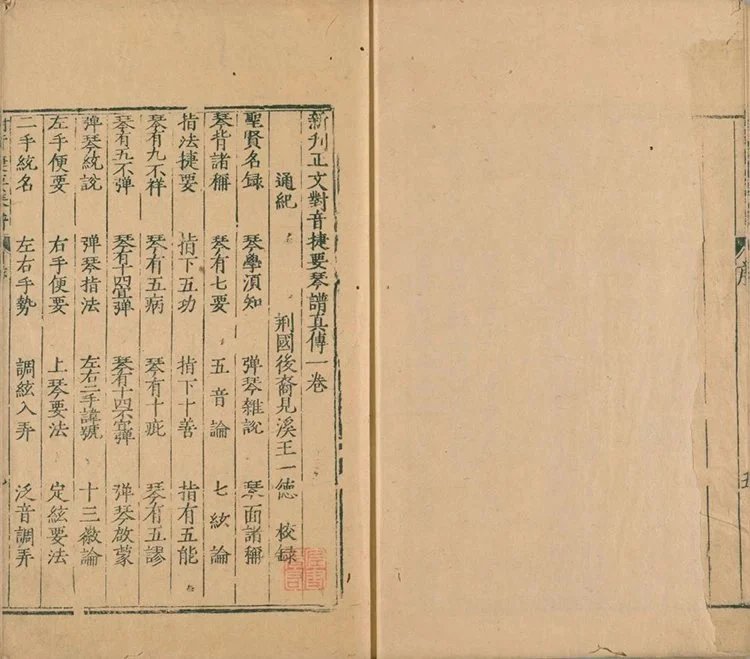 新刋正文對音捷要琴譜真傳一卷
通紀 荆國後裔見溪王一德 校録
聖賢名録 琴學湏知 弹琴雜説 琴面諸稱
琴背諸稱 琴有七要 五音論 七絃論
指法捷要 指下五功 指下十善 指有五能
琴有九不祥 琴有五病 琴有十疵 琴有五謬
琴有五不弹 琴有十四宜弹 琴有十四不宜弹 弹琴啟蒙
弹琴統説 弹琴指法 左右二手諱號 十三徽論
左手便要 右手便要 上琴要法 定絃要法
二手統名 左右手勢 調絃入弄 泛音調弄